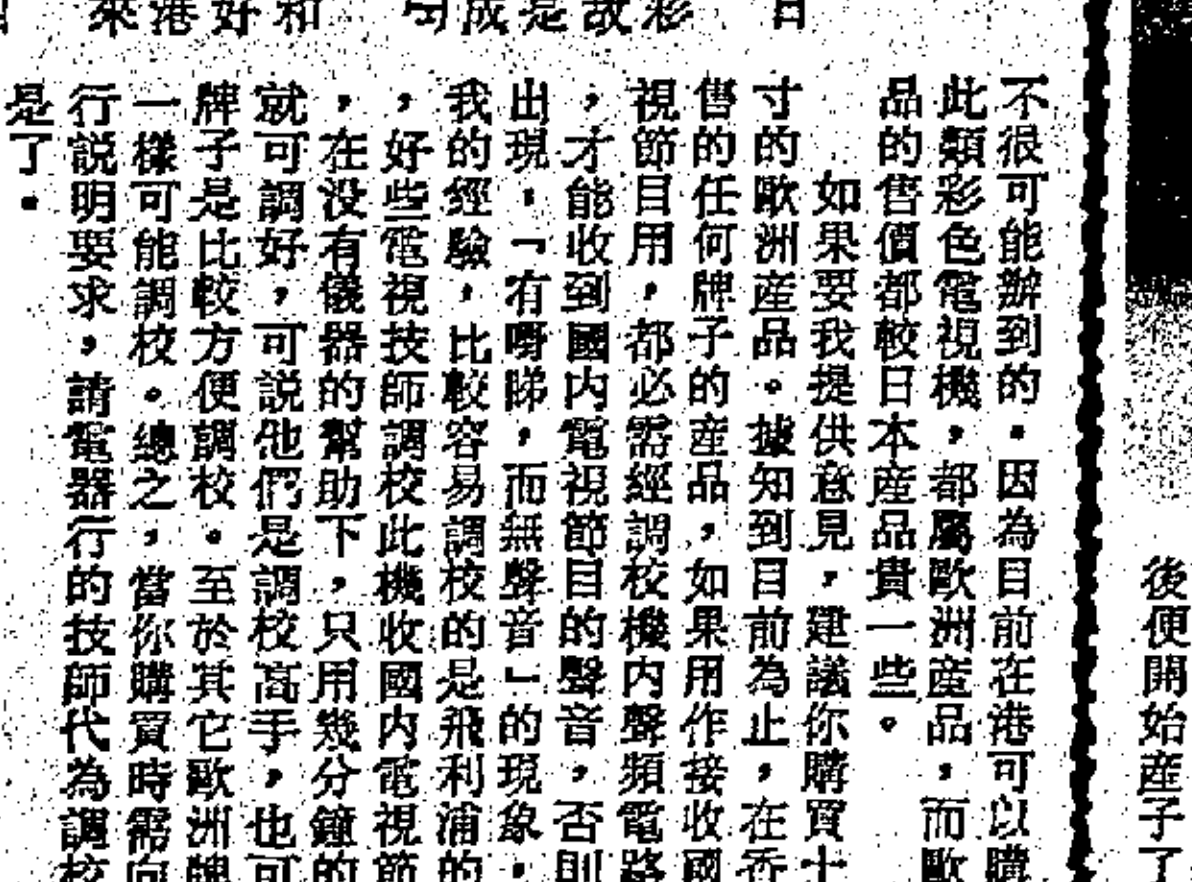 後便開始産子了
不很可能辦到的。因為目前在港可以購
此類彩色電視機，都屬歐洲産品，而歐
品的售價都較日本産品貴一些。
如果要我提供意見，建議你購買十
寸的歐洲産品。據知到目前為止，在香
售的任何牌子的産品，如果用作接收國
視節目用，都必需經調校機内聲頻電路
，才能收到國内電視節目的聲音，否則
出現，「有嘢睇，而無聲音」的現象，
我的經驗，比較容易調校的是飛利浦的
，好些電視技師調校此機收國内電視節
，在没有儀器的幫助下，只用幾分鐘的
就可調好，可説他們是調校高手，也可
牌子是比較方便調校。至於其它歐洲牌
一樣可能調校。總之，當你購買時需向
行説明要求，請電器行的技師代為調校
是了。